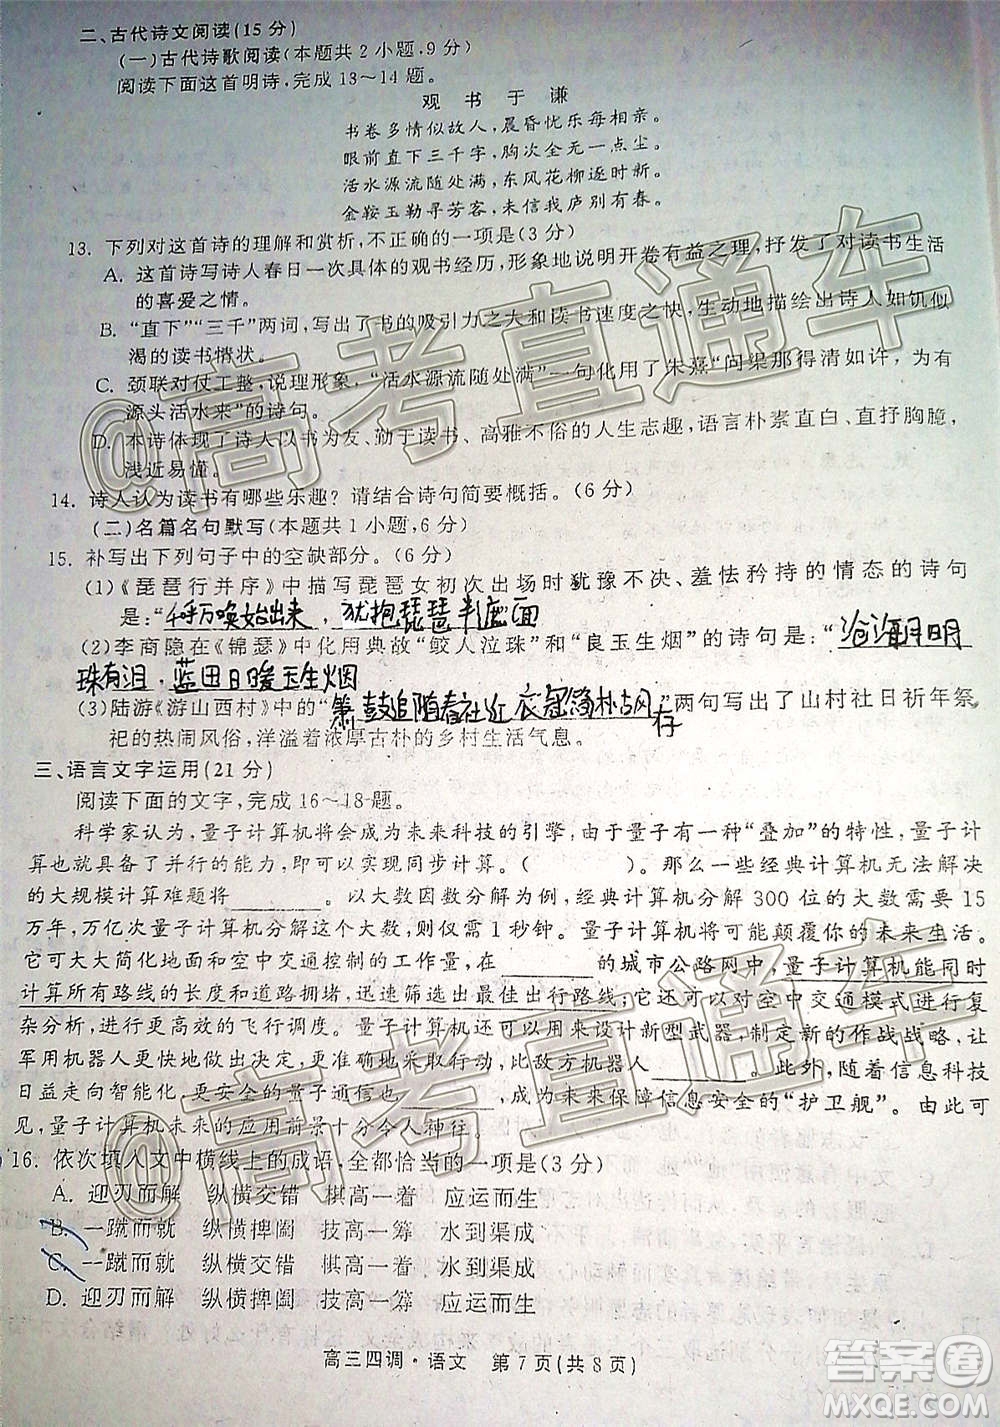 二、古代诗文阅读(15分)
(一)古代诗歌阅读(本题共2小题,9分)
阅读下面这首明诗,完成13～14题。
观 书 于 谦
书卷多情似故人,晨昏忧乐每相亲。
眼前直下三千字,胸次全无一点尘。
活水源流随处满,东风花柳逐时新。
金鞍玉勒寻芳客,未信我庐别有春。
13. 下列对这首诗的理解和赏析,不正确的一项是(3分)
A. 这首诗写诗人春日一次具体的观书经历,形象地说明开卷有益之理,抒发了对读书生活
的喜爱之情。
B. “直下”“三千”两词,写出了书的吸引力之大和读书速度之快,生动地描绘出诗人如饥似
渴的读书情状。
C. 颈联对仗工整,说理形象,“活水源流随处满”一句化用了朱熹“问渠那得清如许,为有
源头活水来”的诗句。
D. 本诗体现了诗人以书为友、勤于读书、高雅不俗的人生志趣,语言朴素直白、直抒胸臆,
浅近易懂。
14. 诗人认为读书有哪些乐趣？请结合诗句简要概括。(6分)
(二)名篇名句默写(本题共1小题,6分)
15. 补写出下列句子中的空缺部分。(6分)
(1)《琵琶行并序》中描写琵琶女初次出场时犹豫不决、羞怯矜持的情态的诗句
是:“千呼万唤始出来,犹抱琵琶半遮面
(2)李商隐在《锦瑟》中化用典故“鲛人泣珠”和“良玉生烟”的诗句是:“沧海月明
珠有泪,蓝田日暖玉生烟
(3)陆游《游山西村》中的“箫鼓追随春社近 衣冠简朴古风存”两句写出了山村社日祈年祭
祀的热闹风俗,洋溢着浓厚古朴的乡村生活气息。
三、语言文字运用(21分)
阅读下面的文字,完成16～18题。
科学家认为,量子计算机将会成为未来科技的引擎,由于量子有一种“叠加”的特性,量子计
算也就具备了并行的能力,可以实现同步计算。( )。那么一些经典计算机无法解决
的大规模计算难题将________。以大数因数分解为例,经典计算机分解300位的大数需要15
万年,万亿次量子计算机分解这个大数,则仅需1秒钟。量子计算机将可能颠覆你的未来生活。
它可大大简化地面和空中交通控制的工作量,在________的城市公路网中,量子计算机能同时
计算所有路线的长度和道路拥堵,迅速筛选出最佳出行路线;它还可以对空中交通模式进行复
杂分析,进行更高效的飞行调度。量子计算机还可以用来设计新型武器,制定新的作战战略,让
军用机器人更快地做出判断,更准确地采取行动,比敌方机器人________。此外,随着信息科技
日益走向智能化,更安全的量子通信也________,成为未来保障信息安全的“护卫舰”。由此可
见,量子计算机未来的应用前景十分令人神往。
16. 依次填入文中横线上的成语,全都恰当的一项是(3分)
A. 迎刃而解 纵横交错 棋高一着 应运而生
B. 一蹴而就 纵横捭阖 技高一筹 水到渠成
C. 一蹴而就 纵横交错 棋高一着 水到渠成
D. 迎刃而解 纵横捭阖 技高一筹 应运而生
高三四调·语文 第7页(共8页)
@高考直通车
@高考直通车
答案圈
MXQE.COM